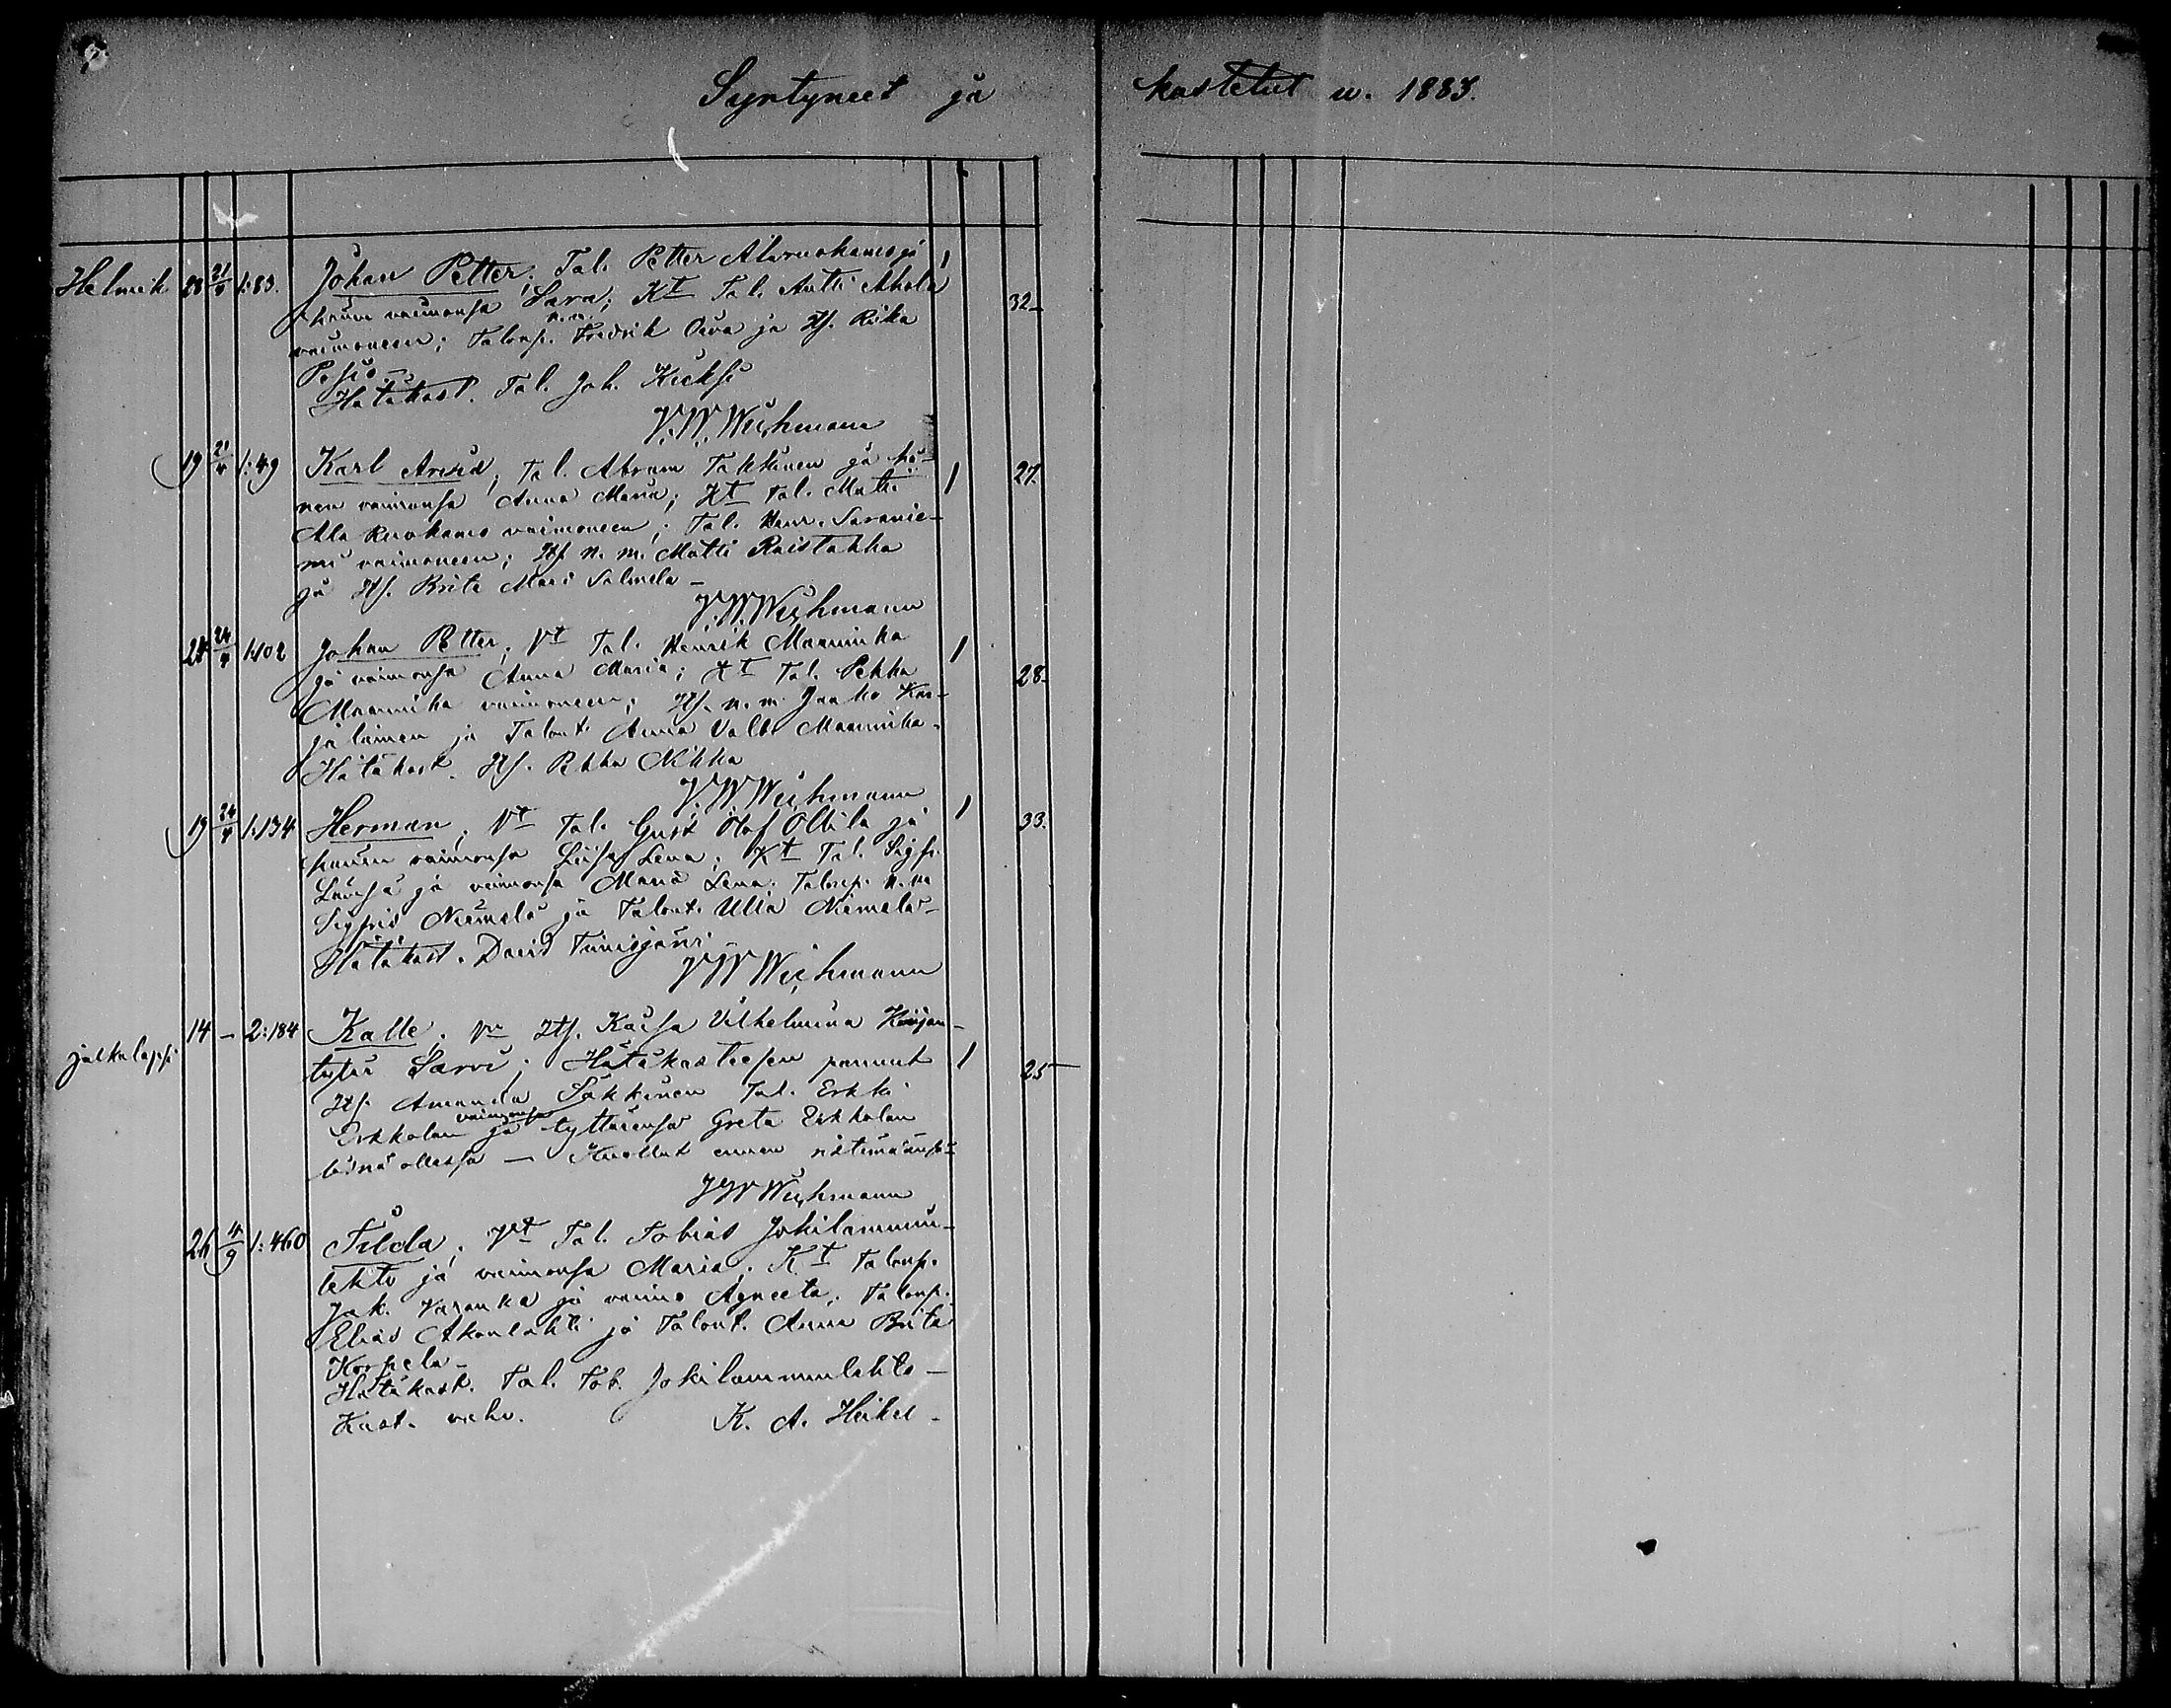 Syntyneet ja kastetut w. 1883.
Helmik 28 21/4 1:83. Johan Petter; Tal. Petter Alaruokanes ja 1
hänen vaimonsa Sara; Kt Tal. Antti Ahola 32
vaimoneen; Talonp. n.m. Fredrik Oiva ja Itf. Riika
Posio –
Hätäkast. Tal. Joh. Kieksi
V. W. Wichmann
19 21/4 1:49 Karl Arvid; Tal. Abram Takkinen ja hä-
nen vaimonsa Anna Maria; Kt Tal. Matti 1 27.
Ala Ruokanes vaimoneen; Tal. Henr. Saranie-
mi vaimoneen; Itf. n. m. Matti Raistakka
ja Itf. Brita Mari Salmela –
V. W. Wichmann
24/4 1:102 Johan Petter; Vt Tal. Henrik Maaninka 1
ja vaimonsa Anna Maria; Kt Tal. Pekka 28.
Maaninka vaimoneen; Itf. n. m. Jaako Kar-
jalainen ja Talont. Anna Valb. Maaninka.
Hätäkast. Itf. Pekka Nikka
V. W. Wichmann
19 24/4 1:134 Herman; Vt Tal. Gust Olof Ollila ja 1 33.
hänen vaimonsa Liisa Lena; Kt Tal. Sigfr.
ja vaimonsa Maria Lena; Talonp. n. m
Sigfrid Niemelä ja Talont. Ulla Niemelä –
Hätäkast. David
V W Wichmann
14 – 2:184 Kalle; Vn Itf. Kaisa Vilhelmina
jalkalapsi tytär Sarvi; Hätäkasteesen pannut 1 25
Itf. Amanda Säkkinen Tal. Erkki
Erkkolan vaimonsa ja tyttärensä Greta Erkkolan
läsnä ollessa – Kuollut ennen ristimäänsä
V W Wichmann
26 4/9 1:460 Tilda; Vt Tal. Tobias Jokilammin-
lehto ja vaimonsa Maria; Kt Talonp.
Jak. Karanka ja vaimo Agneeta; Talonp.
Elias Akanlahti ja Talont. Anna Brita
Korpela –
Hätäkast. Tal. Tob. Jokilamminlehto –
Kast. vahv. K. A. Heikel –